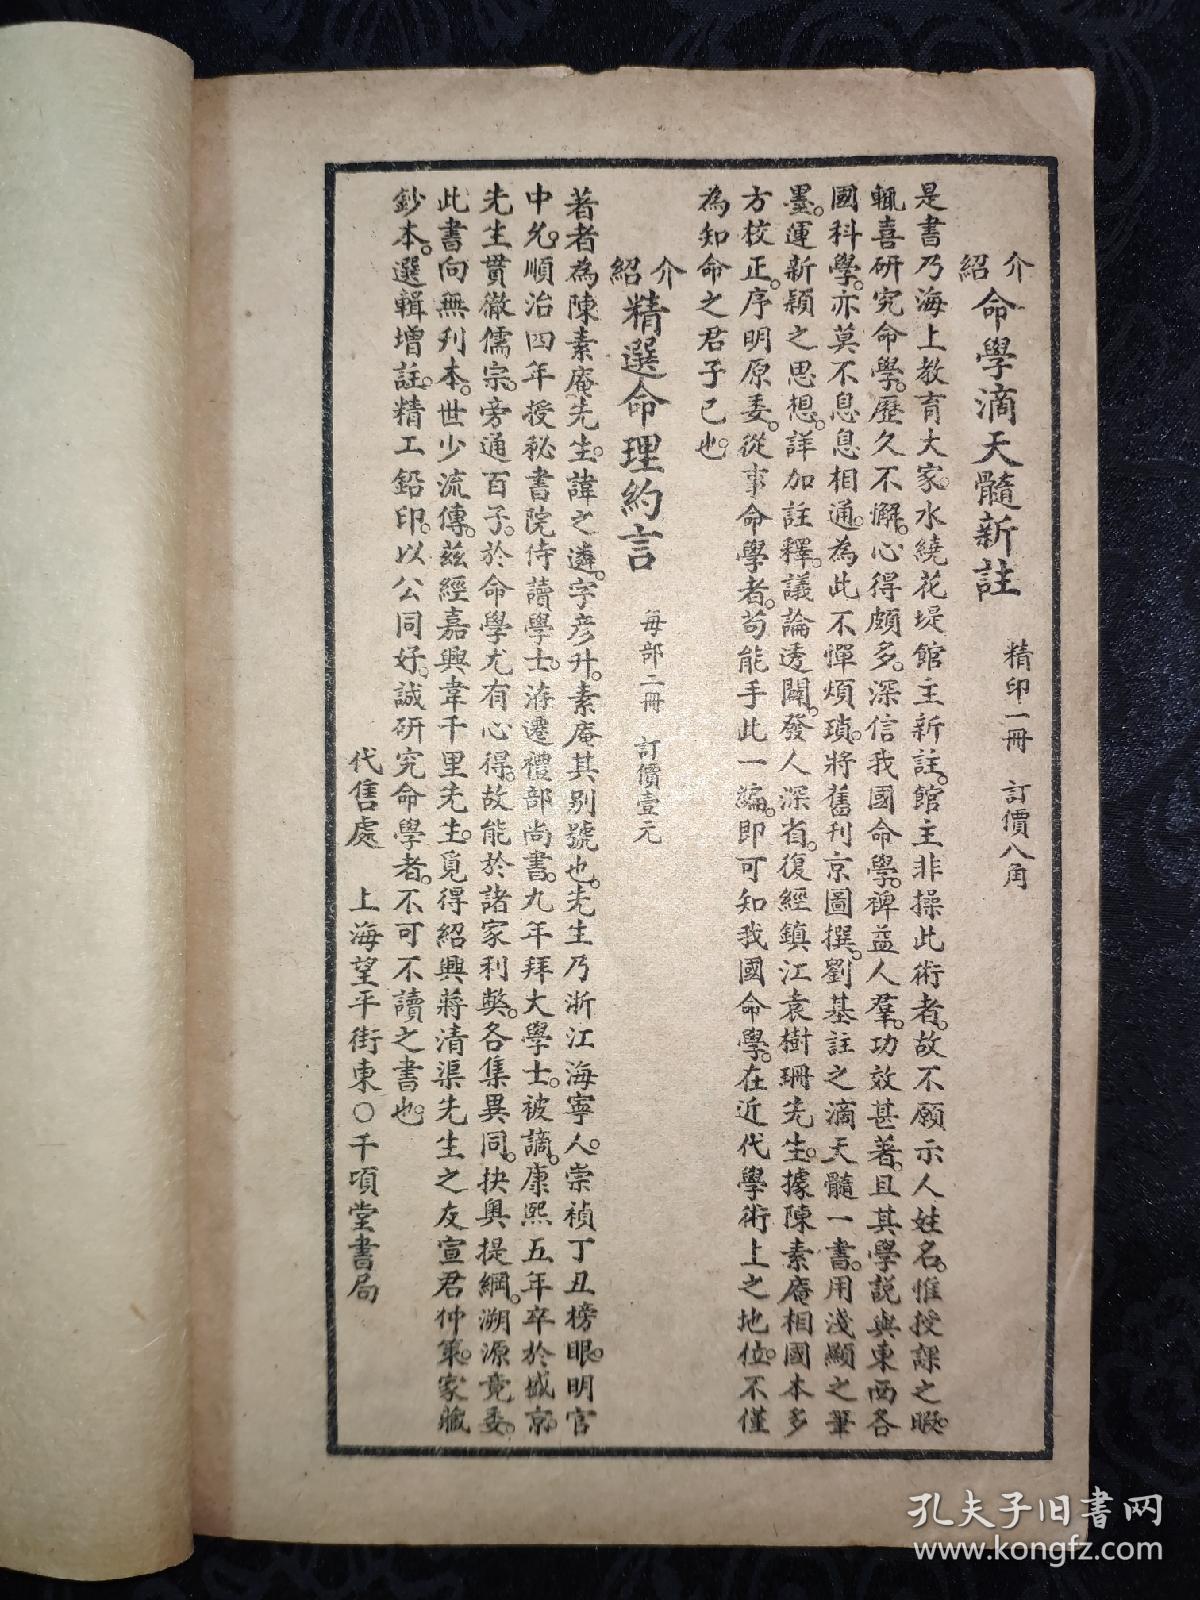 介紹 命學滴天髓新註 精印一冊 訂價八角
是書乃海上教育大家。水繞花堤館主新註。館主非操此術者。故不願示人姓名。惟授課之暇。
輒喜研究命學。歷久不懈。心得頗多。深信我國命學。裨益人羣。功效甚著。且其學說與東西各
國科學。亦莫不息息相通。為此不憚煩瑣。將舊刊京圖撰。劉基註之滴天髓一書。用淺顯之筆
墨。運新穎之思想。詳加註釋。議論透闢。發人深省。復經鎮江袁樹珊先生。據陳素庵相國本多
方校正。序明原委。從事命學者。苟能手此一編。即可知我國命學。在近代學術上之地位。不僅
為知命之君子已也。
介紹 精選命理約言 每部二冊 訂價壹元
著者為陳素庵先生。諱之遴。字彥升。素庵其別號也。先生乃浙江海寧人。崇禎丁丑榜眼。明官
中允。順治四年授秘書院侍讀學士。洊遷禮部尚書。九年拜大學士。被謫。康熙五年卒於盛京。
先生貫徹儒宗。旁通百子。於命學尤有心得。故能於諸家利弊。各集異同。抉奧提綱。溯源竟委。
此書向無刋本。世少流傳。茲經嘉興韋千里先生。覓得紹興蔣清渠先生之友宣君仲策。家藏
鈔本。選輯增註。精工鉛印。以公同好。誠研究命學者。不可不讀之書也。
代售處 上海望平街東〇千頃堂書局
孔夫子旧书网
www.kongfz.com